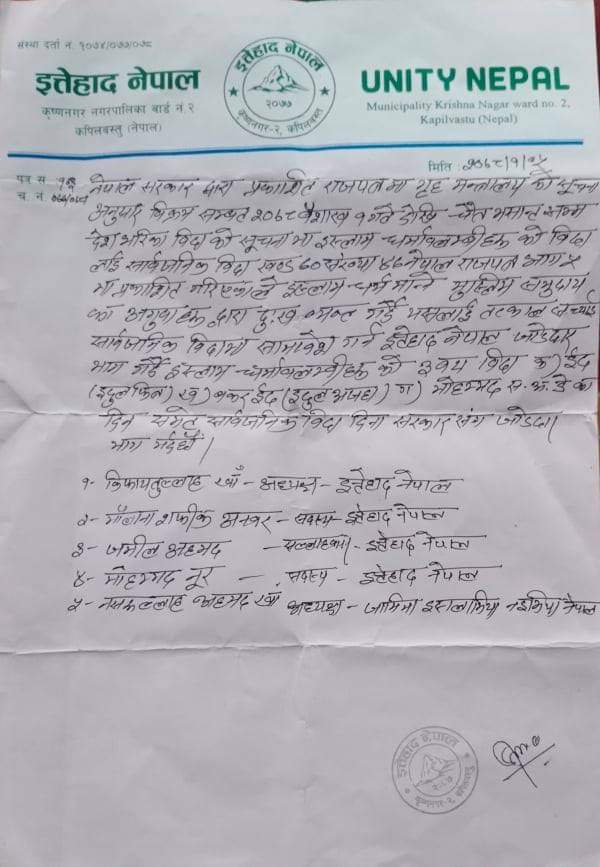 संस्था दर्ता न. १०७४/०७७/०७८
इत्तेहाद नेपाल
कृष्णनगर नगरपालिका बार्ड नं. २
कपिलबस्तु (नेपाल)
इत्तेहाद नेपाल
२०७७
कृष्णनगर-२, कपिलबस्तु
UNITY NEPAL
Municipality Krishna Nagar ward no. 2,
Kapilvastu (Nepal)
मिति : २०७८/१/१५
पत्र स. १५
च. नं.
नेपाल सरकार द्वारा प्रकाशित राजपत्र मा गृह मन्त्रालय को सूचना
अनुसार विक्रम सम्बत २०७८ बैशाख १ गते देखि चैत मसान्त सम्म
देश भरिका विदा को सूचना मा इस्लाम धर्मावलम्बीहरु को विदा
लाई सार्वजनिक विदा खण्ड ७० संख्या ४६ नेपाल राजपत्र भाग ५
मा प्रकाशित गरिएकोले इस्लाम धर्म मान्ने मुस्लिम समुदाय
का अगुवाहरु द्वारा दुःख व्यक्त गर्दै यसलाई तत्काल सच्याई
सार्वजनिक विदामा सामावेश गर्न इत्तेहाद नेपाल जोडदार
माग गर्दै इस्लाम धर्मावलम्बीहरु को ३ वटा विदा क) ईद
(इदुल फित्र) ख) बकर ईद (इदुल अजहा) ग) मोहम्मद स. अ. व का
दिन समेत सार्वजनिक विदा दिन सरकार संग जोडदार
माग गर्दछौं।
१- किफायतुल्लाह खाँ - अध्यक्ष - इत्तेहाद नेपाल
२- मौलाना शफीक अनवर - सदस्य - इत्तेहाद नेपाल
३- जमील अहमद - सल्लाहकार - इत्तेहाद नेपाल
४- मोहम्मद नूर - सदस्य - इत्तेहाद नेपाल
५- अहमद खाँ अध्यक्ष - जामिया इस्लामिया नेपाल
इत्तेहाद नेपाल
२०७७
कृष्णनगर-२, कपिलबस्तु